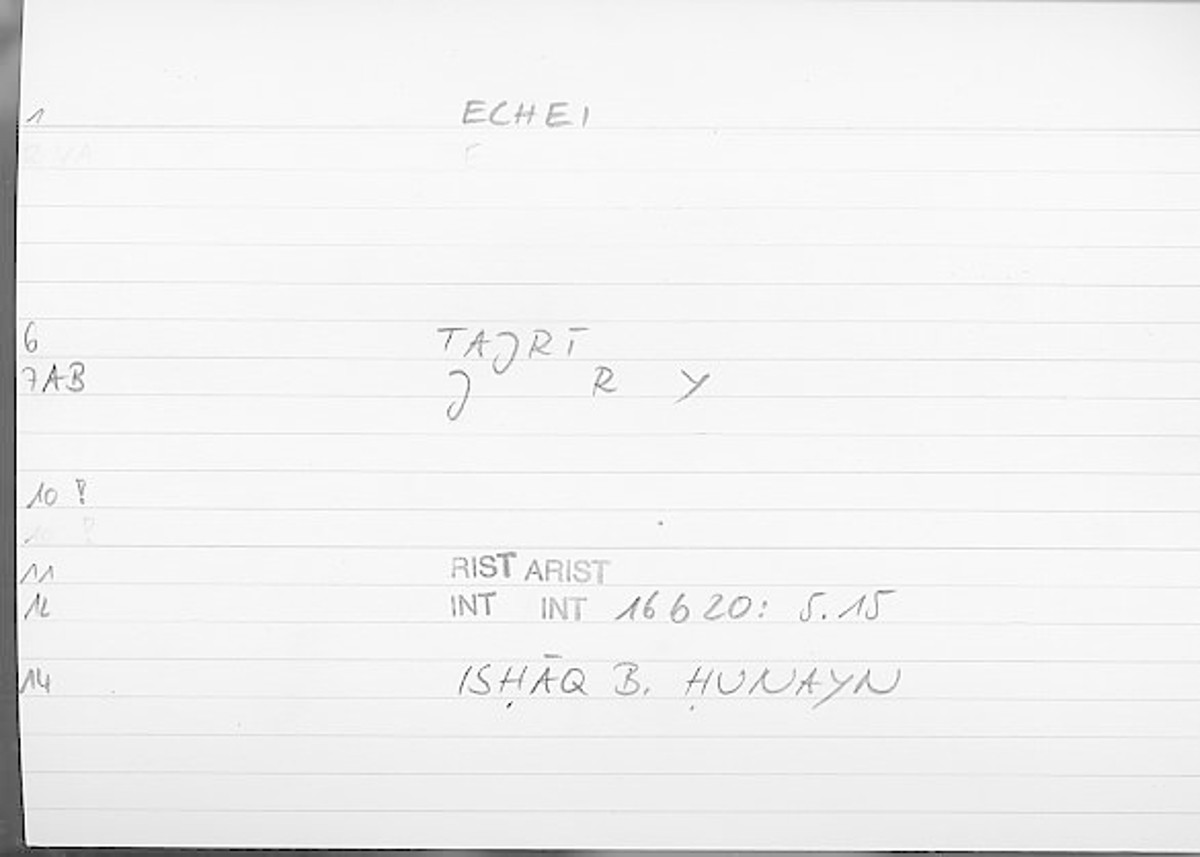 1 ECHEI
6 TAJRĪ
7AB J R Y
10 !
11 RIST ARIST
12 INT INT 16 6 20: 5.15
14 ISḤĀQ B. ḤUNAYN